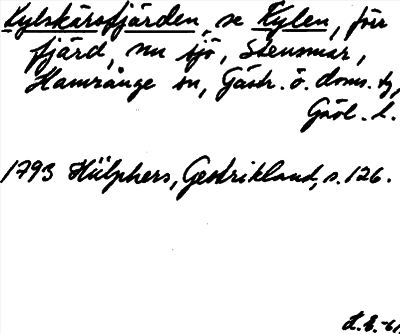 Kylskärsfjärden, se Kylen, förr
fjärd, nu sjö, Stensmar,
Hamrånge sn, Gästr. ö. doms. tg,
Gävl. l.
1793 Hülphers, Gestrikland, s. 126.
L.E. -61.